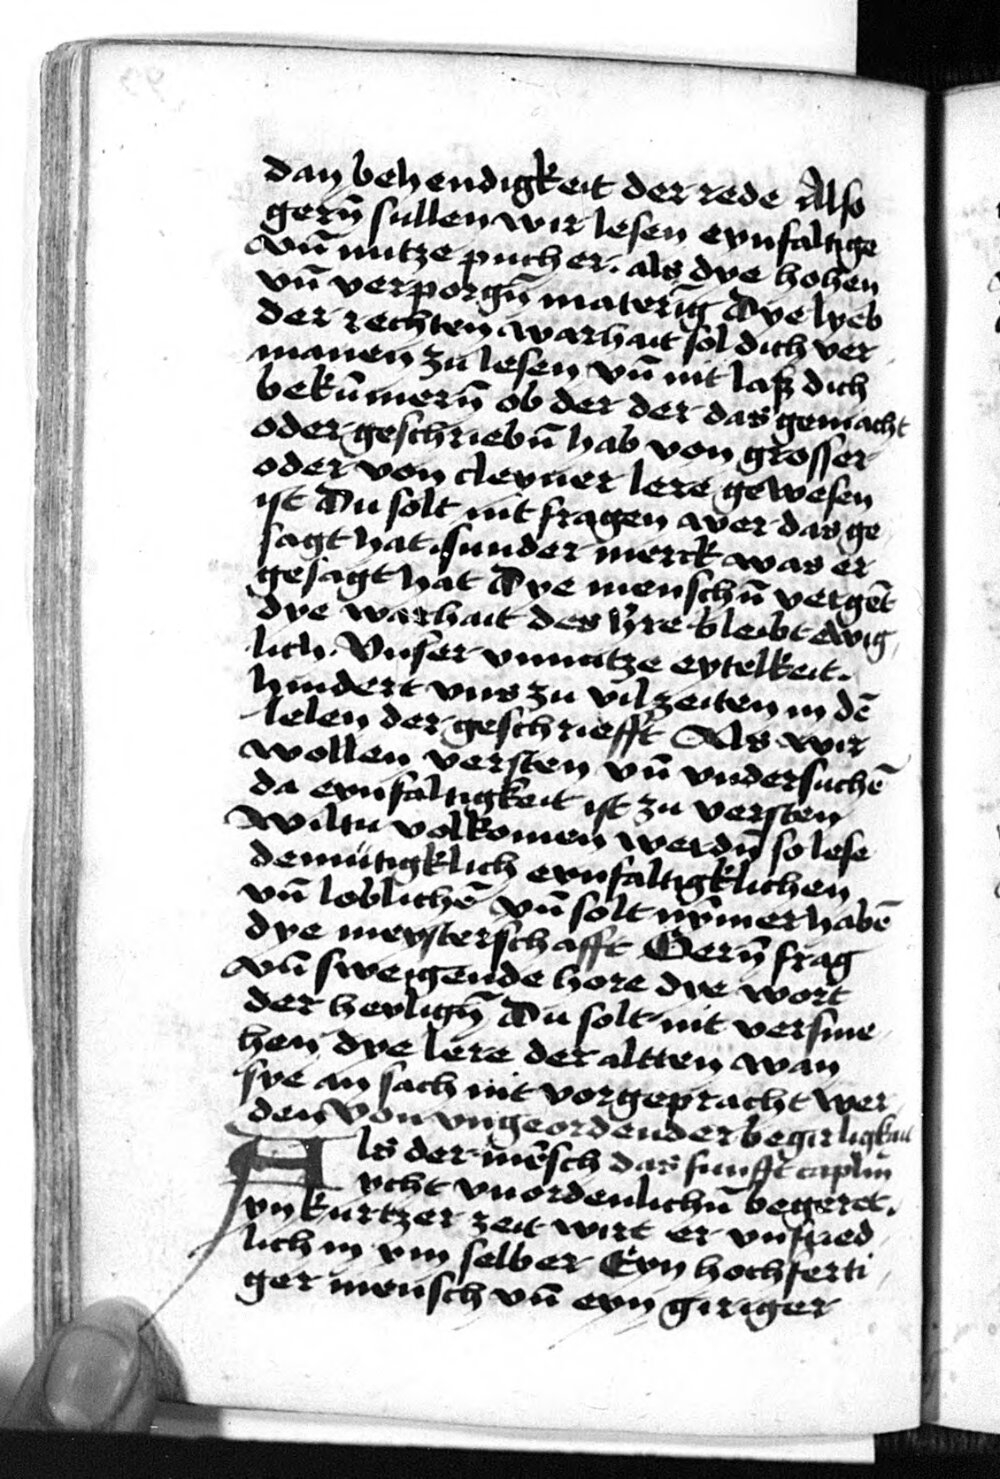 dan behendigkeit der rede Also
gern̄ sullen wir lesen eynfaltige
vn̄ nutze pucher. als dye hohen
vn̄ verporgn̄ materig̃ Dye lyeb
der rechten warhait sol dich ver
manen zu lesen vn̄ nit lasz dich
bekūmern̄ ob der der das gemacht
oder geschriebn̄ hab von grosser
oder von cleyner lere gewesen
ist Du solt nit fragen wer das ge
sagt hat sunder merck was er
gesagt hat Dye menschn̄ vergēt
dye warhait des h're bleibt ewig
lich. Vnser vnnutze eytelkeit.
hindert vns zu vil zeiten in dē
lelen der geschriefft Als wir
wollen versten vn̄ vndersuchē
da eynfaltigkeit ist zu versten
Wiltu volkomen werdn̄ so lese
demütigklich eynfaltigklichen
vn̄ loblichē vn̄ solt nȳmer habē
dye meysterschafft Gern̄ frag
vn̄ sweigende hore dye wort
der heylign̄ Du solt nit versme
hen dye lere der altten wan
sye an sach nit vorgepracht wer
den Von vngeordender begirligkait
Als der mēsch das funfft caplm̄
ycht vnordenlichn̄ begeret.
yn kurtzer zeit wirt er vnfried
lich in ym selber Eyn hochferti
ger mensch vn̄ eyn giriger